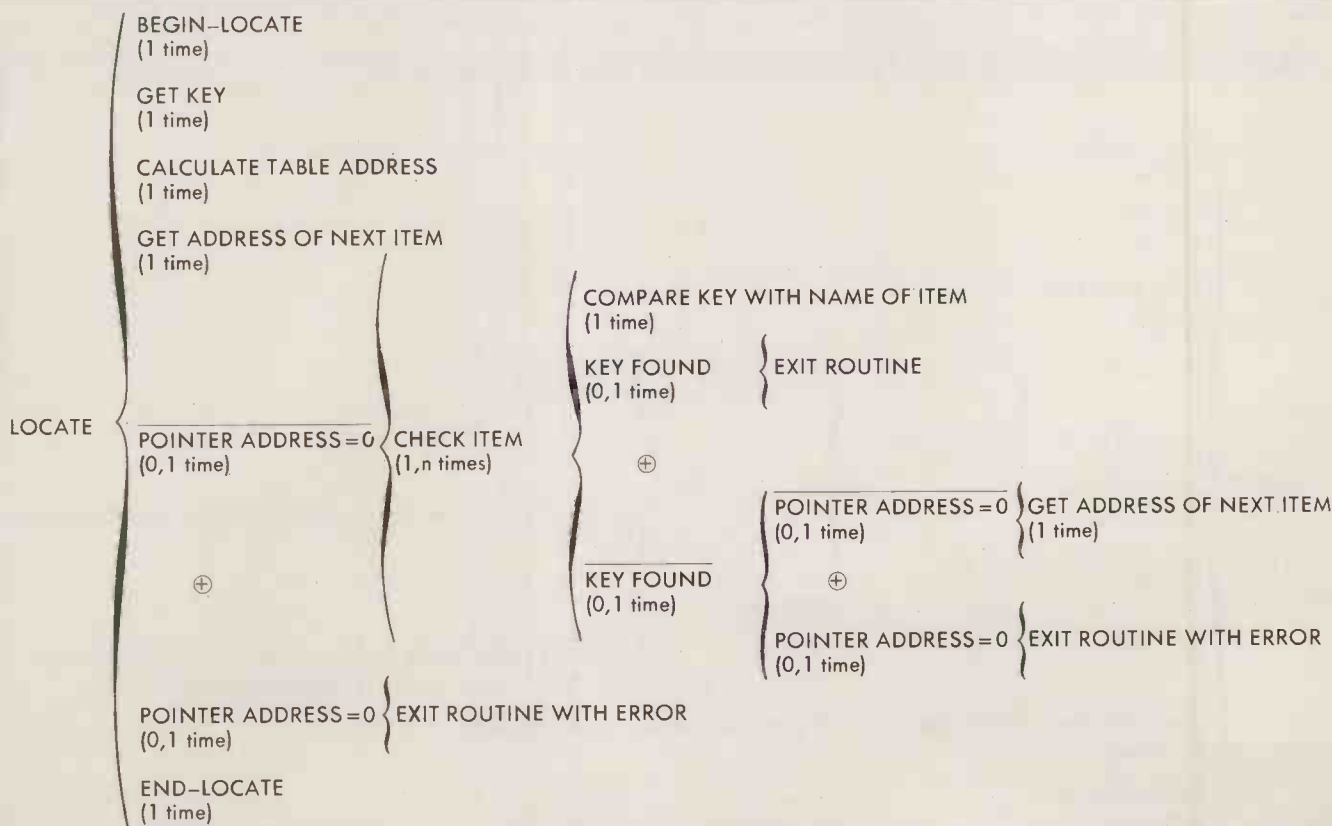 BEGIN–LOCATE
(1 time)
GET KEY
(1 time)
CALCULATE TABLE ADDRESS
(1 time)
GET ADDRESS OF NEXT ITEM
(1 time)
LOCATE
POINTER ADDRESS=0
(0,1 time)
CHECK ITEM
(1,n times)
COMPARE KEY WITH NAME OF ITEM
(1 time)
KEY FOUND
(0,1 time)
EXIT ROUTINE
⊕
KEY FOUND
(0,1 time)
POINTER ADDRESS=0
(0,1 time)
GET ADDRESS OF NEXT ITEM
(1 time)
⊕
POINTER ADDRESS=0
(0,1 time)
EXIT ROUTINE WITH ERROR
⊕
POINTER ADDRESS=0
(0,1 time)
EXIT ROUTINE WITH ERROR
END–LOCATE
(1 time)